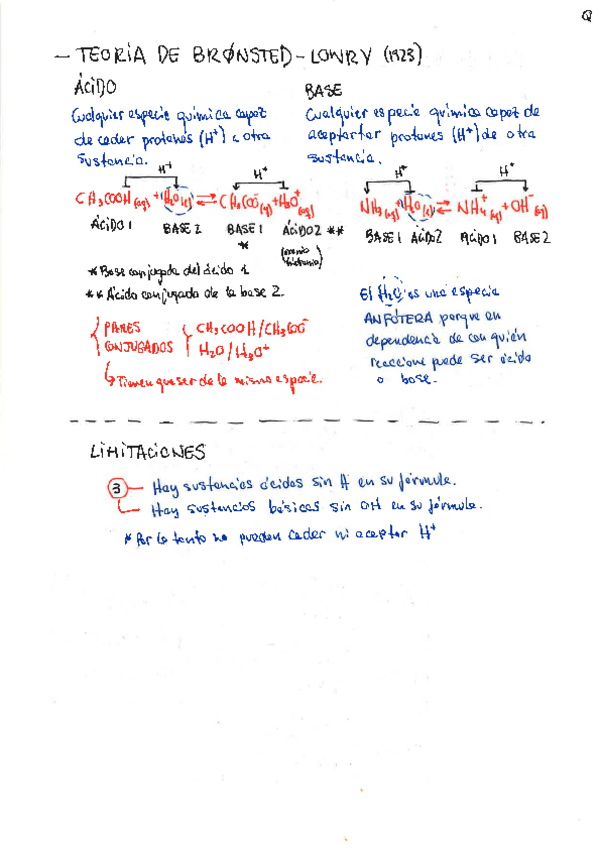 Q
– TEORÍA DE BRØNSTED-LOWRY (1923)
ÁCIDO
Cualquier especie química capaz
de ceder protones (H⁺) a otra
sustancia.
BASE
Cualquier especie química capaz de
aceptar protones (H⁺) de otra
sustancia.
H⁺ H⁺
CH₃COOH(aq) + H₂O(l) ⇌ CH₃COO⁻(aq) + H₃O⁺(aq)
ÁCIDO 1 BASE 2 BASE 1 ÁCIDO 2 **
*
H⁺ H⁺
NH₃(aq) + H₂O(l) ⇌ NH₄⁺(aq) + OH⁻(aq)
BASE 1 ÁCIDO 2 ÁCIDO 1 BASE 2
* Base conjugada del ácido 1.
** Ácido conjugado de la base 2.
PARES
CONJUGADOS
CH₃COOH/CH₃COO⁻
H₂O/H₃O⁺
↳ Tienen que ser de la misma especie.
El H₂O es una especie
ANFÓTERA porque en
dependencia de con quién
reaccione puede ser ácido
o base.
LIMITACIONES
3 – Hay sustancias ácidas sin H en su fórmula.
Hay sustancias básicas sin OH en su fórmula.
* Por lo tanto no pueden ceder ni aceptar H⁺